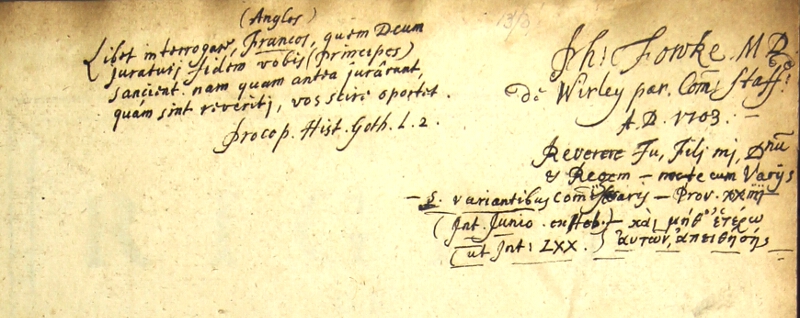 (Anglos)
Libet interrogare, Francos, quem Deum
juraturi fidem vobis (Principes)
sancient. nam quam antea jurârunt,
quám sint reveriti, vos scire oportet.
Procop. Hist. Goth. L. 2.
1313
Ph: Fowke. M D.
De Wirley par. Com: Staff:
A.D. 1703. —
Reverere Tu, Filj mj, Dnũ
& Regem — cum Varijs
— s. variantibus — Prov. xxiiij
(Int. Junio. ex Heb.) — καὶ μηθ' ἑτέρω
(ut Int: LXX.) αυτων, απειθησης